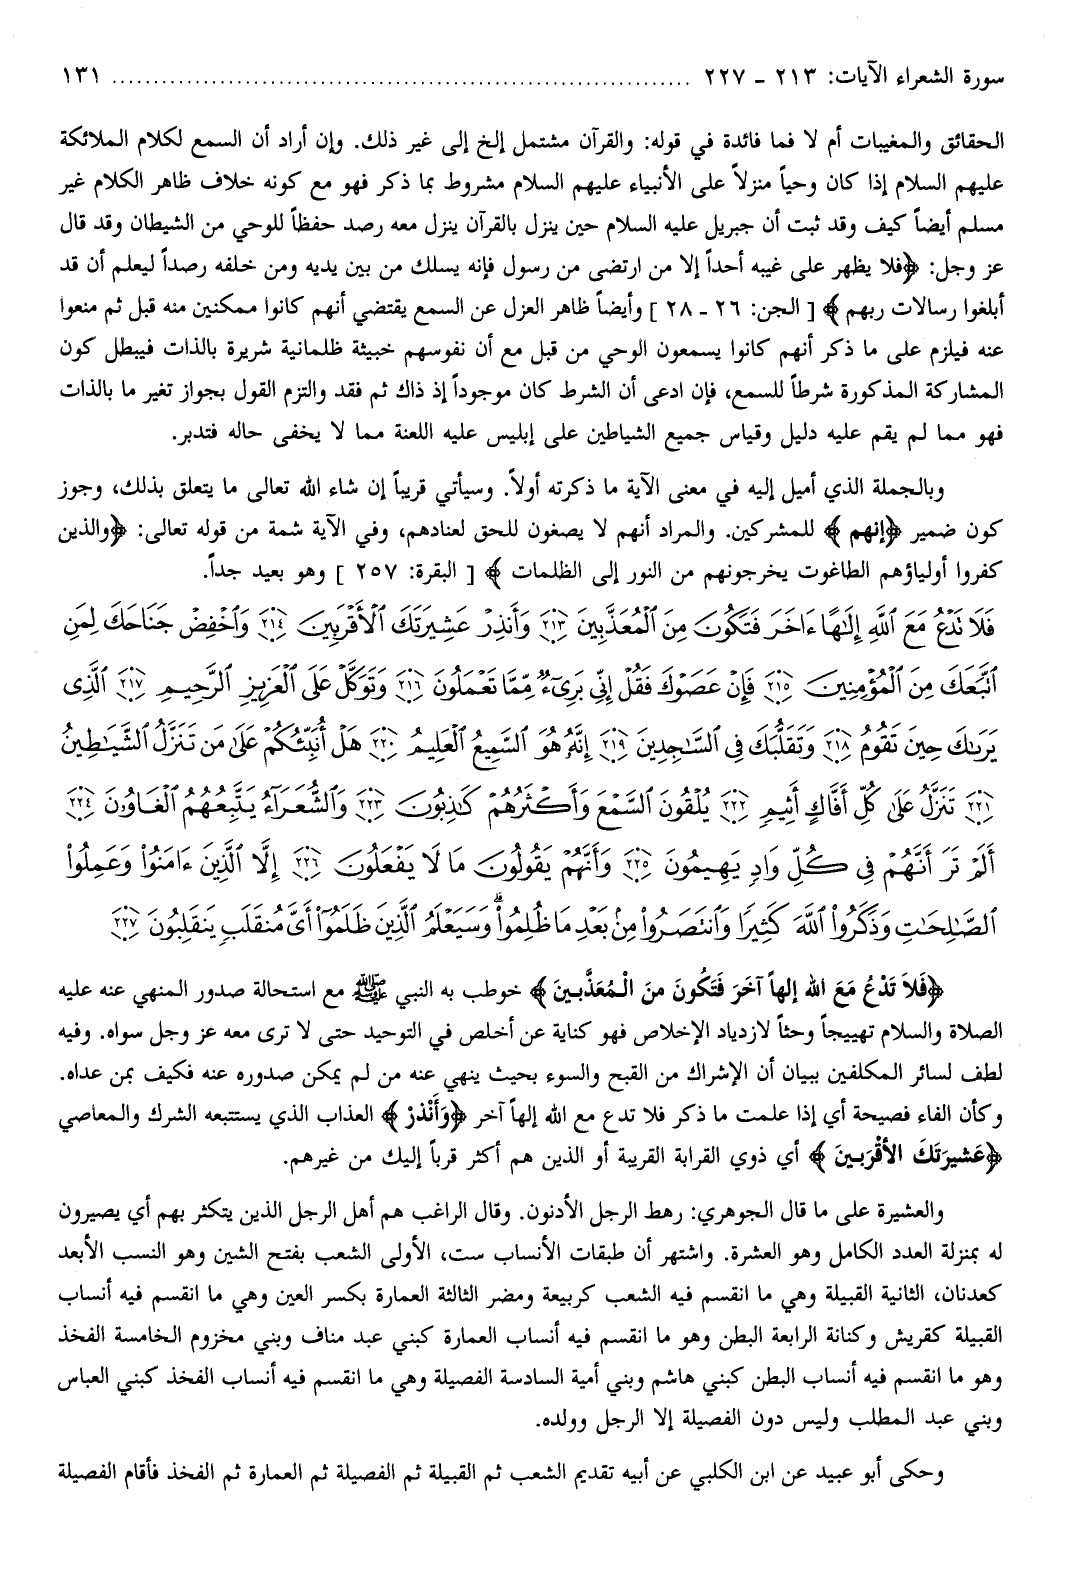 سورة الشعراء الآيات: ٢١٣ ـ ٢٢٧ ........................................................................ ١٣١
الحقائق والمغيبات أم لا فما فائدة في قوله: والقرآن مشتمل إلخ إلى غير ذلك. وإن أراد أن السمع لكلام الملائكة
عليهم السلام إذا كان وحياً منزلاً على الأنبياء عليهم السلام مشروط بما ذكر فهو مع كونه خلاف ظاهر الكلام غير
مسلم أيضاً كيف وقد ثبت أن جبريل عليه السلام حين ينزل بالقرآن ينزل معه رصد حفظاً للوحي من الشيطان وقد قال
عز وجل: ﴿فلا يظهر على غيبه أحداً إلا من ارتضى من رسول فإنه يسلك من بين يديه ومن خلفه رصداً ليعلم أن قد
أبلغوا رسالات ربهم﴾ [ الجن: ٢٦ ـ ٢٨ ] وأيضاً ظاهر العزل عن السمع يقتضي أنهم كانوا ممكنين منه قبل ثم منعوا
عنه فيلزم على ما ذكر أنهم كانوا يسمعون الوحي من قبل مع أن نفوسهم خبيثة ظلمانية شريرة بالذات فيبطل كون
المشاركة المذكورة شرطاً للسمع، فإن ادعى أن الشرط كان موجوداً إذ ذاك ثم فقد والتزم القول بجواز تغير ما بالذات
فهو مما لم يقم عليه دليل وقياس جميع الشياطين على إبليس عليه اللعنة مما لا يخفى حاله فتدبر.
وبالجملة الذي أميل إليه في معنى الآية ما ذكرته أولاً. وسيأتي قريباً إن شاء الله تعالى ما يتعلق بذلك، وجوز
كون ضمير ﴿إنهم﴾ للمشركين. والمراد أنهم لا يصغون للحق لعنادهم، وفي الآية شمة من قوله تعالى: ﴿والذين
كفروا أولياؤهم الطاغوت يخرجونهم من النور إلى الظلمات﴾ [ البقرة: ٢٥٧ ] وهو بعيد جداً.
فَلَا تَدْعُ مَعَ ٱللَّهِ إِلَٰهًا ءَاخَرَ فَتَكُونَ مِنَ ٱلْمُعَذَّبِينَ ٢١٣ وَأَنذِرْ عَشِيرَتَكَ ٱلْأَقْرَبِينَ ٢١٤ وَٱخْفِضْ جَنَاحَكَ لِمَنِ
ٱتَّبَعَكَ مِنَ ٱلْمُؤْمِنِينَ ٢١٥ فَإِنْ عَصَوْكَ فَقُلْ إِنِّي بَرِيٓءٌ مِّمَّا تَعْمَلُونَ ٢١٦ وَتَوَكَّلْ عَلَى ٱلْعَزِيزِ ٱلرَّحِيمِ ٢١٧ ٱلَّذِى
يَرَىٰكَ حِينَ تَقُومُ ٢١٨ وَتَقَلُّبَكَ فِى ٱلسَّٰجِدِينَ ٢١٩ إِنَّهُۥ هُوَ ٱلسَّمِيعُ ٱلْعَلِيمُ ٢٢٠ هَلْ أُنَبِّئُكُمْ عَلَىٰ مَن تَنَزَّلُ ٱلشَّيَٰطِينُ
٢٢١ تَنَزَّلُ عَلَىٰ كُلِّ أَفَّاكٍ أَثِيمٍ ٢٢٢ يُلْقُونَ ٱلسَّمْعَ وَأَكْثَرُهُمْ كَٰذِبُونَ ٢٢٣ وَٱلشُّعَرَآءُ يَتَّبِعُهُمُ ٱلْغَاوُۥنَ ٢٢٤
أَلَمْ تَرَ أَنَّهُمْ فِى كُلِّ وَادٍ يَهِيمُونَ ٢٢٥ وَأَنَّهُمْ يَقُولُونَ مَا لَا يَفْعَلُونَ ٢٢٦ إِلَّا ٱلَّذِينَ ءَامَنُوا۟ وَعَمِلُوا۟
ٱلصَّٰلِحَٰتِ وَذَكَرُوا۟ ٱللَّهَ كَثِيرًا وَٱنتَصَرُوا۟ مِنۢ بَعْدِ مَا ظُلِمُوا۟ ۗ وَسَيَعْلَمُ ٱلَّذِينَ ظَلَمُوٓا۟ أَىَّ مُنقَلَبٍ يَنقَلِبُونَ ٢٢٧
﴿فَلاَ تَدْعُ مَعَ الله إلهاً آخَرَ فَتَكُونَ منَ الْمُعَذَّبينَ﴾ خوطب به النبي ﷺ مع استحالة صدور المنهي عنه عليه
الصلاة والسلام تهييجاً وحثاً لازدياد الإخلاص فهو كناية عن أخلص في التوحيد حتى لا ترى معه عز وجل سواه. وفيه
لطف لسائر المكلفين ببيان أن الإشراك من القبح والسوء بحيث ينهي عنه من لم يمكن صدوره عنه فكيف بمن عداه.
وكأن الفاء فصيحة أي إذا علمت ما ذكر فلا تدع مع الله إلهاً آخر ﴿وَأَنْذرْ﴾ العذاب الذي يستتبعه الشرك والمعاصي
﴿عَشيرَتَكَ الأقْرَبينَ﴾ أي ذوي القرابة القريبة أو الذين هم أكثر قرباً إليك من غيرهم.
والعشيرة على ما قال الجوهري: رهط الرجل الأدنون. وقال الراغب هم أهل الرجل الذين يتكثر بهم أي يصيرون
له بمنزلة العدد الكامل وهو العشرة. واشتهر أن طبقات الأنساب ست، الأولى الشعب بفتح الشين وهو النسب الأبعد
كعدنان، الثانية القبيلة وهي ما انقسم فيه الشعب كربيعة ومضر الثالثة العمارة بكسر العين وهي ما انقسم فيه أنساب
القبيلة كقريش وكنانة الرابعة البطن وهو ما انقسم فيه أنساب العمارة كبني عبد مناف وبني مخزوم الخامسة الفخذ
وهو ما انقسم فيه أنساب البطن كبني هاشم وبني أمية السادسة الفصيلة وهي ما انقسم فيه أنساب الفخذ كبني العباس
وبني عبد المطلب وليس دون الفصيلة إلا الرجل وولده.
وحكى أبو عبيد عن ابن الكلبي عن أبيه تقديم الشعب ثم القبيلة ثم الفصيلة ثم العمارة ثم الفخذ فأقام الفصيلة